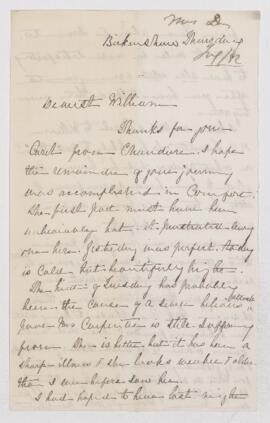 Mrs D
Thursday
July/82
Dearest William
Thanks for your
Card from Chandure. I hope
the remainder of your journey
was accomplished in Comfort.
The first part must have been
unbearably hot. it prostrated every
one here. Yesterday was perfect. today
is Cold, but beautifully bright.
The heat of Tuesday has probably
been the Cause of a severe bilious attack
fever Mrs Carpenter is still suffering
from. She is better, but it has been a
sharp illness & she looks weaker & older
than I ever before saw her.
I had hoped to have last night